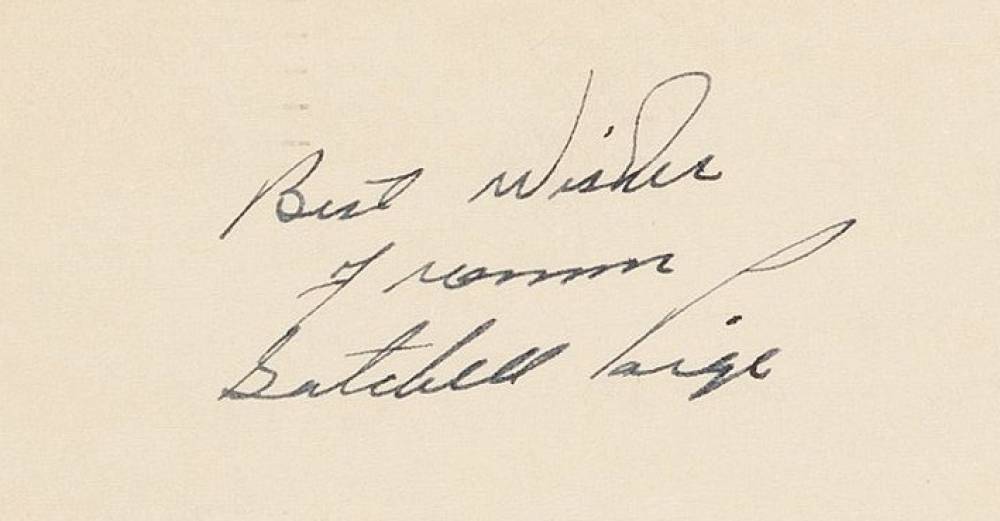 Best Wishes
From
Satchell Paige